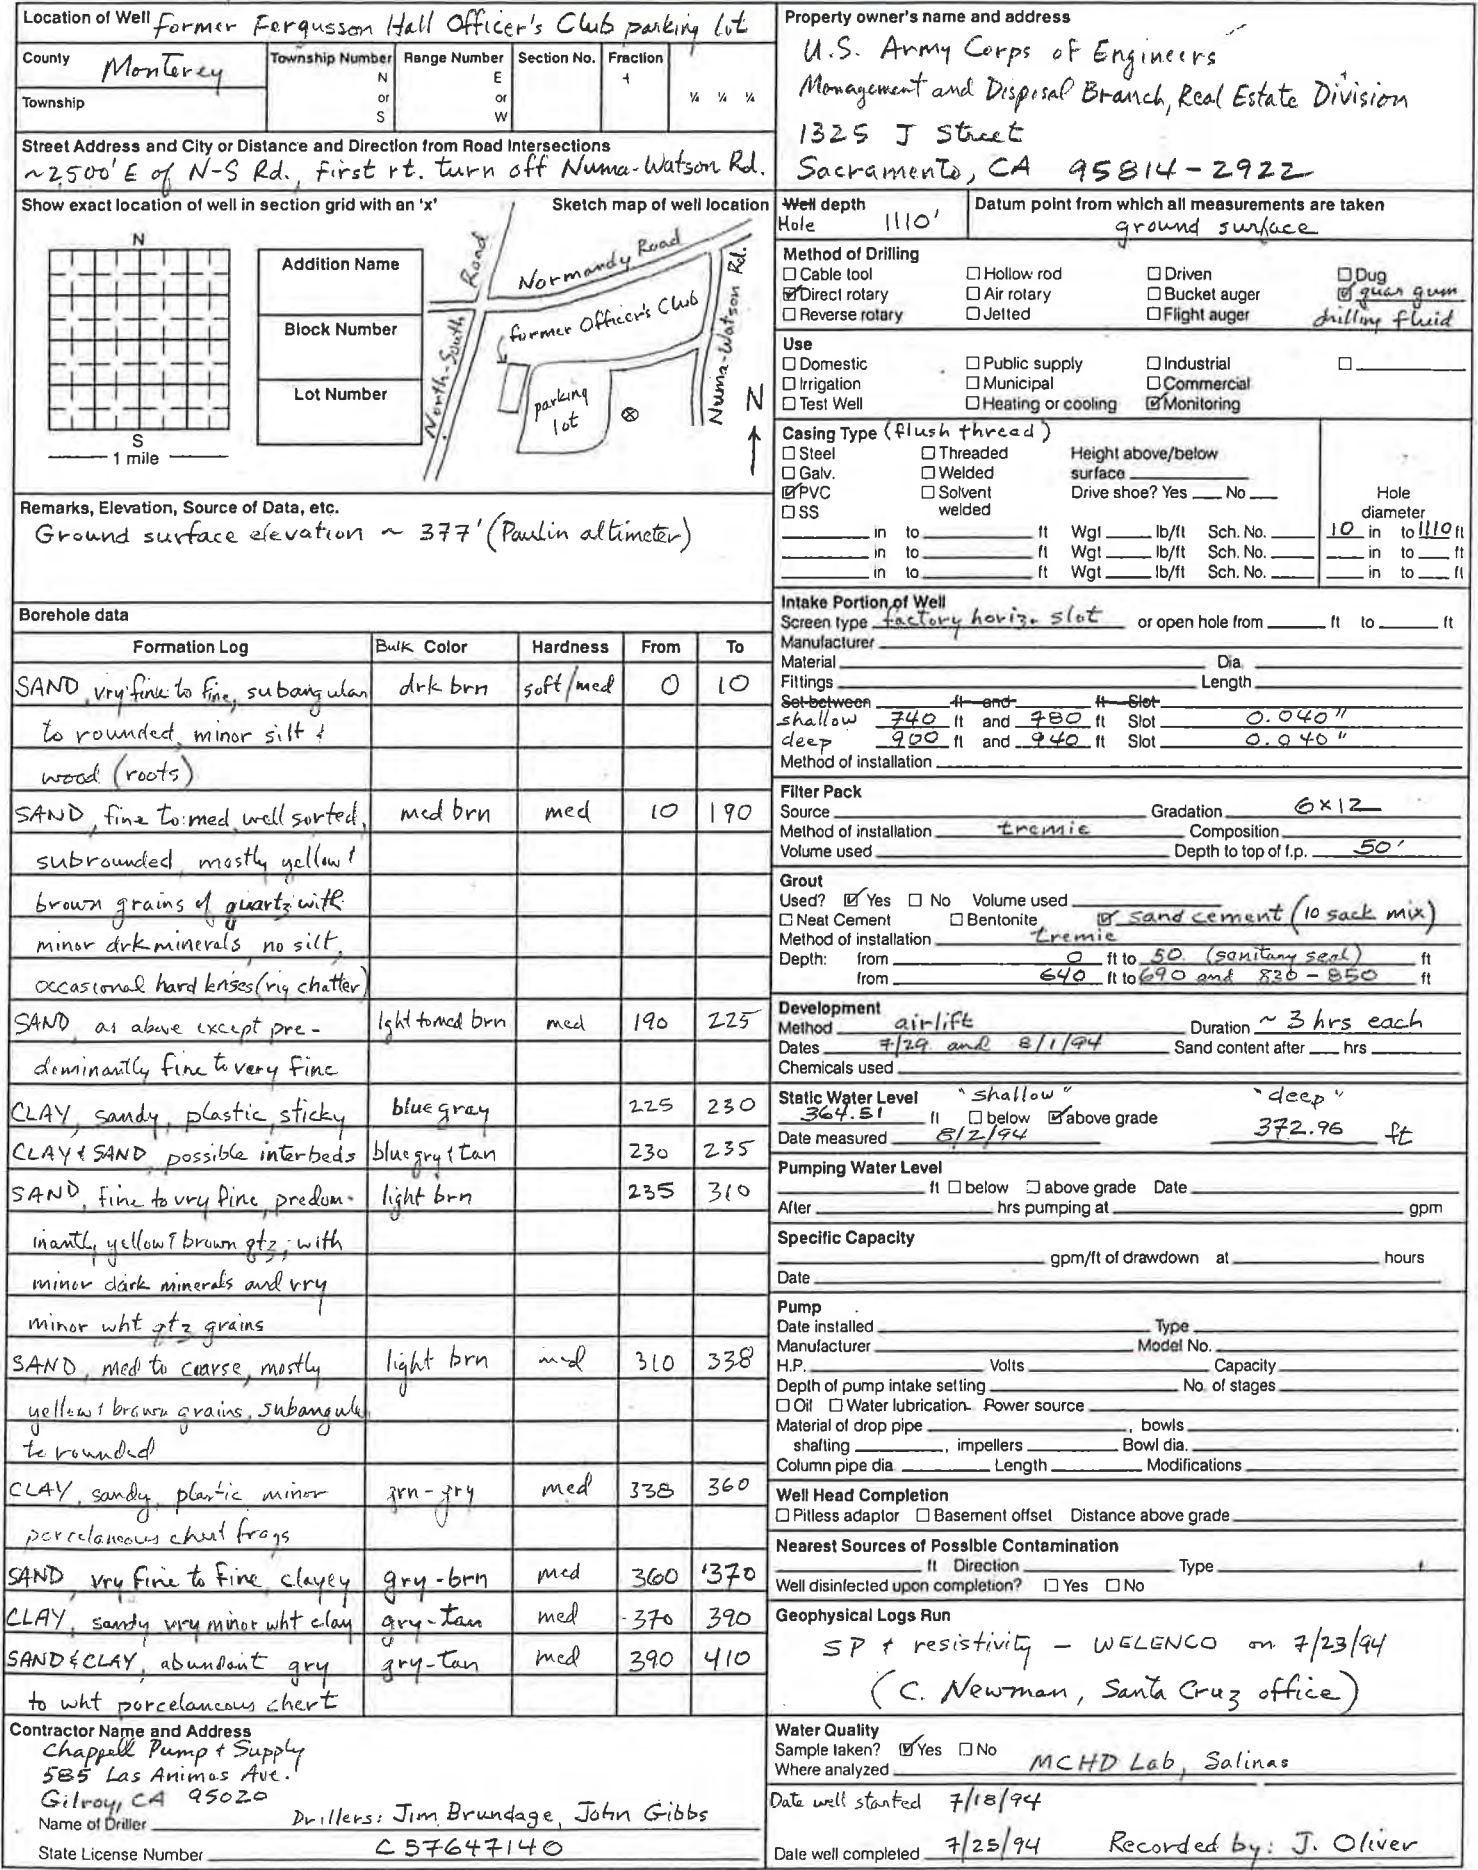 Location of Well former Fergusson Hall Officer's Club parking lot
County Monterey
Township Number N or S
Range Number E or W
Section No.
Fraction
¼ ¼ ¼
Township
Street Address and City or Distance and Direction from Road Intersections
~2,500' E of N-S Rd., first rt. turn off Numa-Watson Rd.
Show exact location of well in section grid with an 'x'
Sketch map of well location
N
S
1 mile
Addition Name
Block Number
Lot Number
North-South Road
Normandy Road
former Officer's Club
parking lot
Numa-Watson Rd.
N
Remarks, Elevation, Source of Data, etc.
Ground surface elevation ~ 377' (Paulin altimeter)
Borehole data
Formation Log Bulk Color Hardness From To
SAND, vry fine to fine, subangular drk brn soft/med 0 10
to rounded, minor silt &
wood (roots)
SAND, fine to med, well sorted, med brn med 10 190
subrounded, mostly yellow &
brown grains of quartz with
minor drk minerals, no silt,
occasional hard lenses (rig chatter)
SAND, as above except pre- lght to med brn med 190 225
dominantly fine to very fine
CLAY, sandy, plastic, sticky blue gray 225 230
CLAY & SAND, possible interbeds blue gry & tan 230 235
SAND, fine to vry fine, predom- light brn 235 310
inantly yellow & brown qtz, with
minor dark minerals and vry
minor wht qtz grains
SAND, med to coarse, mostly light brn med 310 338
yellow & brown grains, subangular
to rounded
CLAY, sandy, plastic, minor grn-gry med 338 360
porcelaneous chert frags
SAND, vry fine to fine, clayey gry-brn med 360 370
CLAY, sandy vry minor wht clay gry-tan med 370 390
SAND & CLAY, abundant gry gry-tan med 390 410
to wht porcelaneous chert
Contractor Name and Address
Chappell Pump & Supply
585 Las Animas Ave.
Gilroy, CA 95020
Name of Driller Drillers: Jim Brundage, John Gibbs
State License Number C57647140
Property owner's name and address
U.S. Army Corps of Engineers
Management and Disposal Branch, Real Estate Division
1325 J Street
Sacramento, CA 95814-2922
Well depth
Hole 1110'
Datum point from which all measurements are taken
ground surface
Method of Drilling
Cable tool Hollow rod Driven Dug
Direct rotary Air rotary Bucket auger guar gum
Reverse rotary Jetted Flight auger drilling fluid
Use
Domestic Public supply Industrial
Irrigation Municipal Commercial
Test Well Heating or cooling Monitoring
Casing Type (flush thread)
Steel Threaded Height above/below
Galv. Welded surface
PVC Solvent welded Drive shoe? Yes No
SS
Hole diameter
in to ft Wgt lb/ft Sch. No. 10 in to 1110 ft
in to ft Wgt lb/ft Sch. No. in to ft
in to ft Wgt lb/ft Sch. No. in to ft
Intake Portion of Well
Screen type factory horiz. slot or open hole from ft to ft
Manufacturer
Material Dia.
Fittings Length
Set between ft and ft Slot
shallow 740 ft and 780 ft Slot 0.040"
deep 900 ft and 940 ft Slot 0.040"
Method of installation
Filter Pack
Source Gradation 6x12
Method of installation tremie Composition
Volume used Depth to top of f.p. 50'
Grout
Used? Yes No Volume used
Neat Cement Bentonite sand cement (10 sack mix)
Method of installation tremie
Depth: from 0 ft to 50. (sanitary seal) ft
from 640 ft to 690 and 830 - 850 ft
Development
Method airlift Duration ~ 3 hrs each
Dates 7/29 and 8/1/94 Sand content after hrs
Chemicals used
Static Water Level "shallow" "deep"
364.51 ft below above grade 372.96 ft
Date measured 8/2/94
Pumping Water Level
ft below above grade Date
After hrs pumping at gpm
Specific Capacity
gpm/ft of drawdown at hours
Date
Pump
Date installed Type
Manufacturer Model No.
H.P. Volts Capacity
Depth of pump intake setting No. of stages
Oil Water lubrication Power source
Material of drop pipe , bowls
shafting , impellers Bowl dia.
Column pipe dia Length Modifications
Well Head Completion
Pitless adaptor Basement offset Distance above grade
Nearest Sources of Possible Contamination
ft Direction Type
Well disinfected upon completion? Yes No
Geophysical Logs Run
SP & resistivity - WELENCO on 7/23/94
(C. Newman, Santa Cruz office)
Water Quality
Sample taken? Yes No
Where analyzed MCHD Lab, Salinas
Date well started 7/18/94
Date well completed 7/25/94 Recorded by: J. Oliver